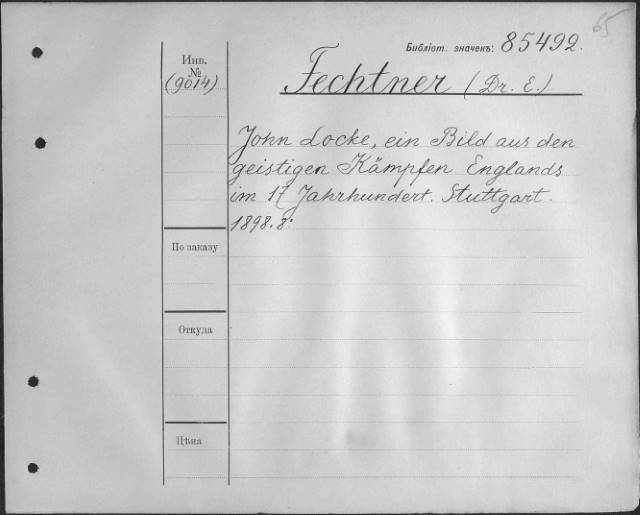 65
Библіот. значекъ: 85492.
Инв.
№
(9014)
Fechtner (Dr. E.)
John Locke, ein Bild aus den
geistigen Kämpfen Englands
im 17 Jahrhundert. Stuttgart.
1898. 8:
По заказу
Откуда
Цѣна